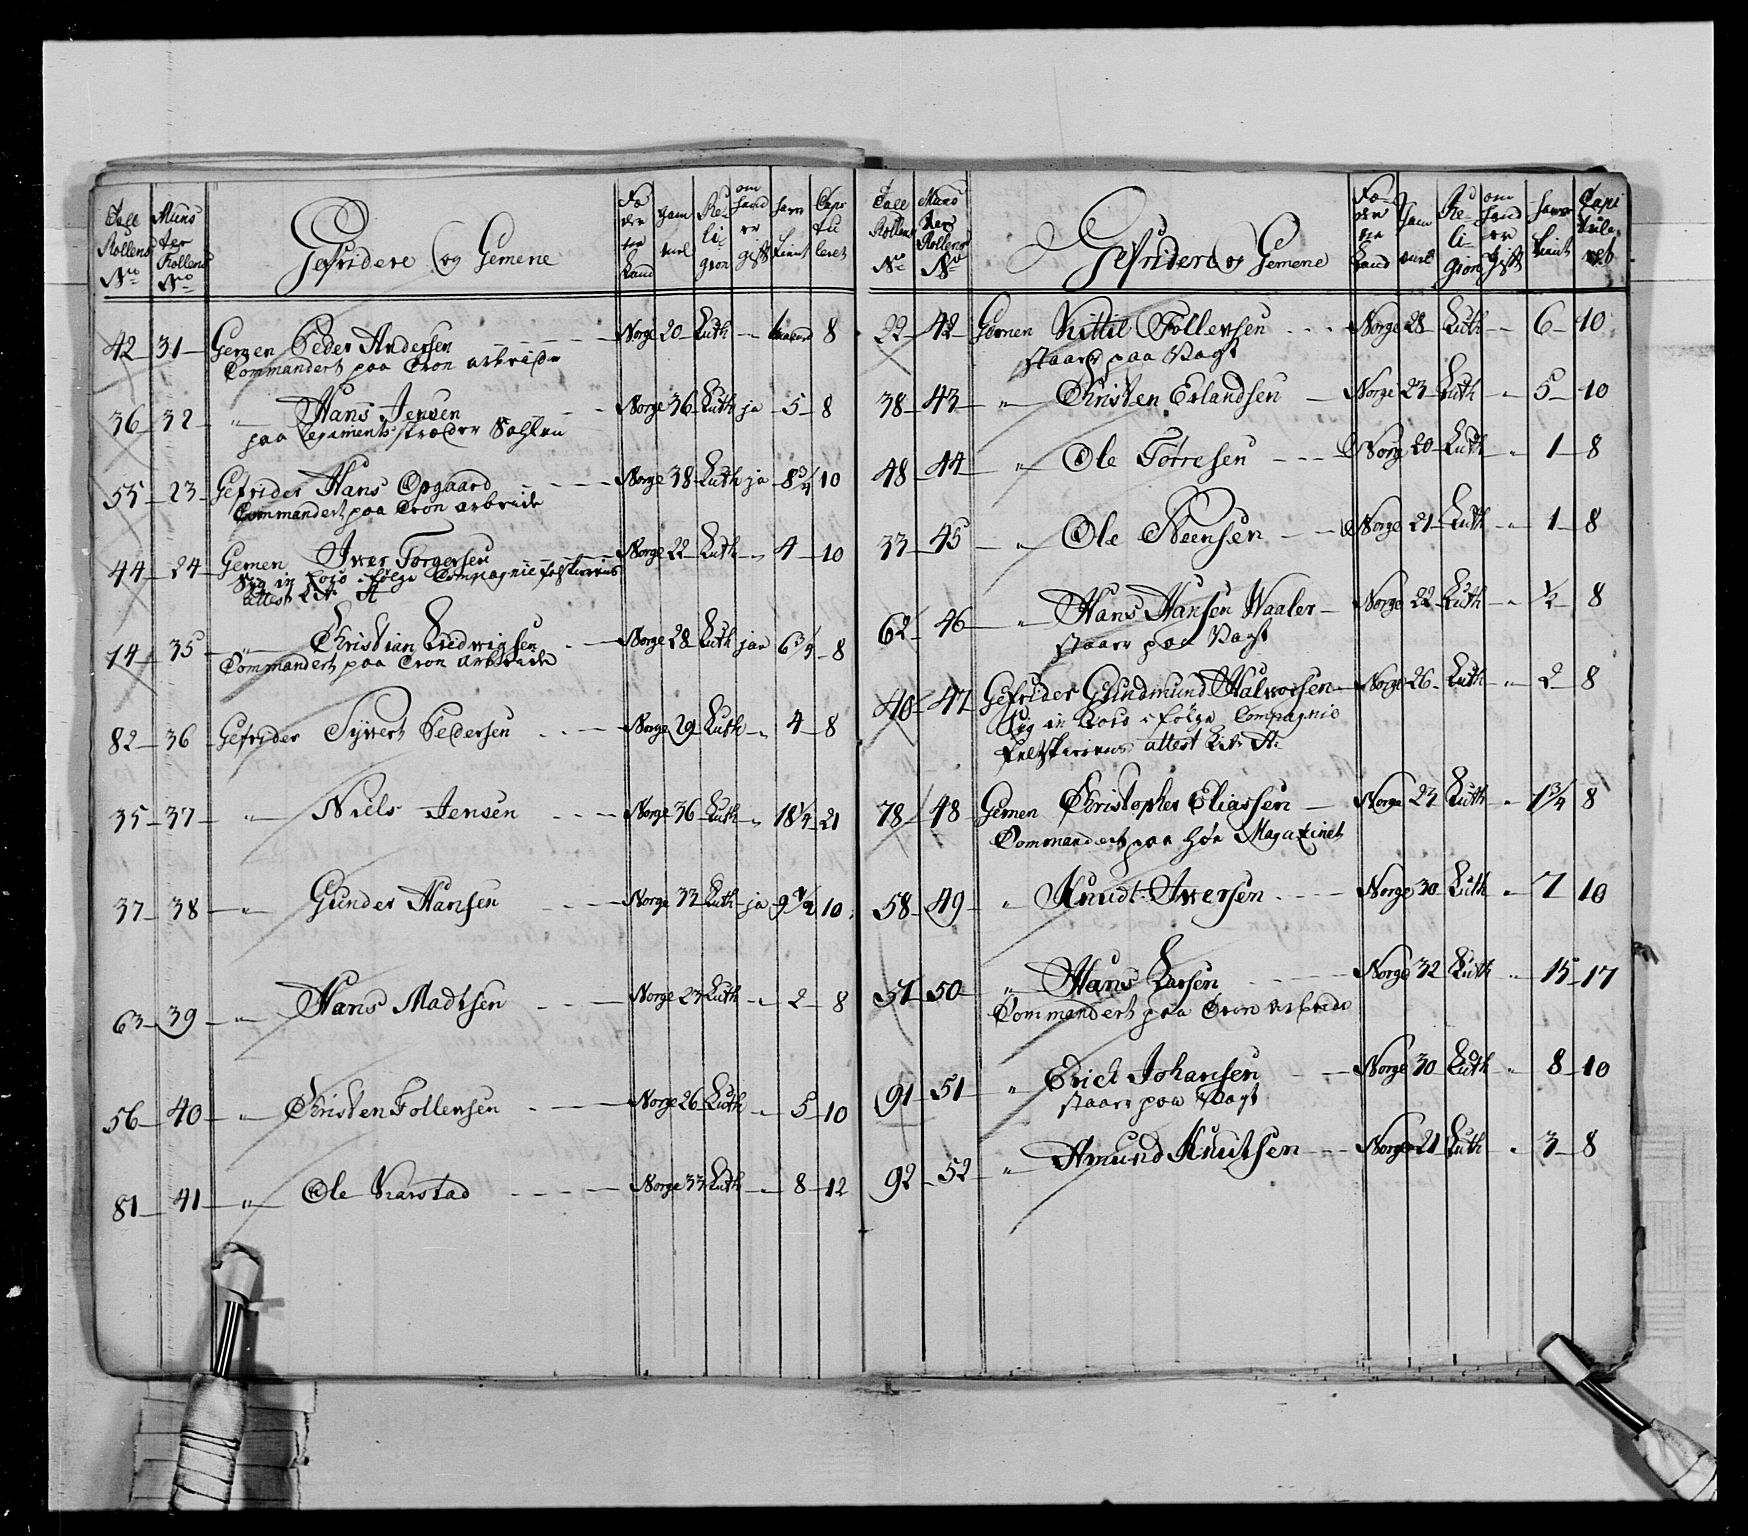 Tall Rollens No | Munster Rollens No | Gefridere og Gemene | Fæderne Land | Gam̄el | Religion | om hand er gift | haver tient | Capituleret
42 – 31 – Gemen Peder Andersen – – – Norge 20 Luth – „ – 8
Commandert paa Cron arbeide
36 – 32 – „ Hans Jensen – – – Norge 36 Luth ja – 5 – 8
paa Regiments
55 – 23 – Gefrider Hans Opgaard – – – Norge 38 Luth ja – 8 3/4 10
Commandert paa Cron arbeide
44 – 24 – Gemen Iver Torgersen – – – Norge 22 Luth – „ 4 – 10
Syg in Loco ifølge Compagnie feltskierens
attest Litr A
14 – 35 – „ Christian Ludwigsen – – Norge 28 Luth jae 6 3/4 – 8
Commandert paa Cron arbeide
82 – 36 – Gefrider Syvert Pedersen – – – Norge 29 Luth – „ 4 – 8
35 – 37 – „ Niels Jensen – – – Norge 36 Luth – „ 18 1/4 – 21
37 – 38 – „ Gunder Hansen – – – Norge 33 Luth ja 9 1/2 10
63 – 39 – „ Hans Madtsen – – – Norge 23 Luth – „ 2 – 8
56 – 40 – „ Christen Tollevsen – – – Norge 26 Luth – „ 5 – 10
81 – 41 – „ Ole Narstad – – – Norge 33 Luth – „ 8 – 12
Tall Rollens No | Munster Rollens No | Gefridere og Gemene | Fæderne Land | Gam̄el | Religion | om hand er Gift | haver tient | Capituleret
22 – 42 – Gemen Kittil Tollevsen – – – Norge 28 Luth – „ 6 – 10
staaer paa Vagt
38 – 43 – „ Christen Erlandsen – Norge 23 Luth – „ 5 – 10
48 – 44 – „ Ole Torresen – – – Norge 20 Luth – „ 1 – 8
33 – 45 – „ Ole Steensen – – – Norge 21 Luth – „ 1 – 8
62 – 46 – „ Hans Hansen Waaler – Norge 22 Luth – „ 1/2 – 8
staaer paa Vagt
40 – 47 – Gefrider Gundmund Halvorsen – Norge 26 Luth – „ 2 – 8
Syg in Loco ifølge Compagnie
Feltskierens attest Litr A:
78 – 48 Gemen Christopher Eliassen – Norge 23 Luth „ 1 3/4 8
Commandert paa Høe Magazinet
58 – 49 – „ Knudt Iwersen – – – Norge 30 Luth „ 7 10
51 – 50 – „ Hans Larsen – – – Norge 32 Luth „ 15 – 17
Commandert paa Cron arbeide
91 – 51 – „ Erich Johansen – – Norge 30 Luth „ 8 – 10
staaer paa Vagt
92 – 52 – „ Amund Knutsen – – – Norge 21 Luth „ 3 – 8